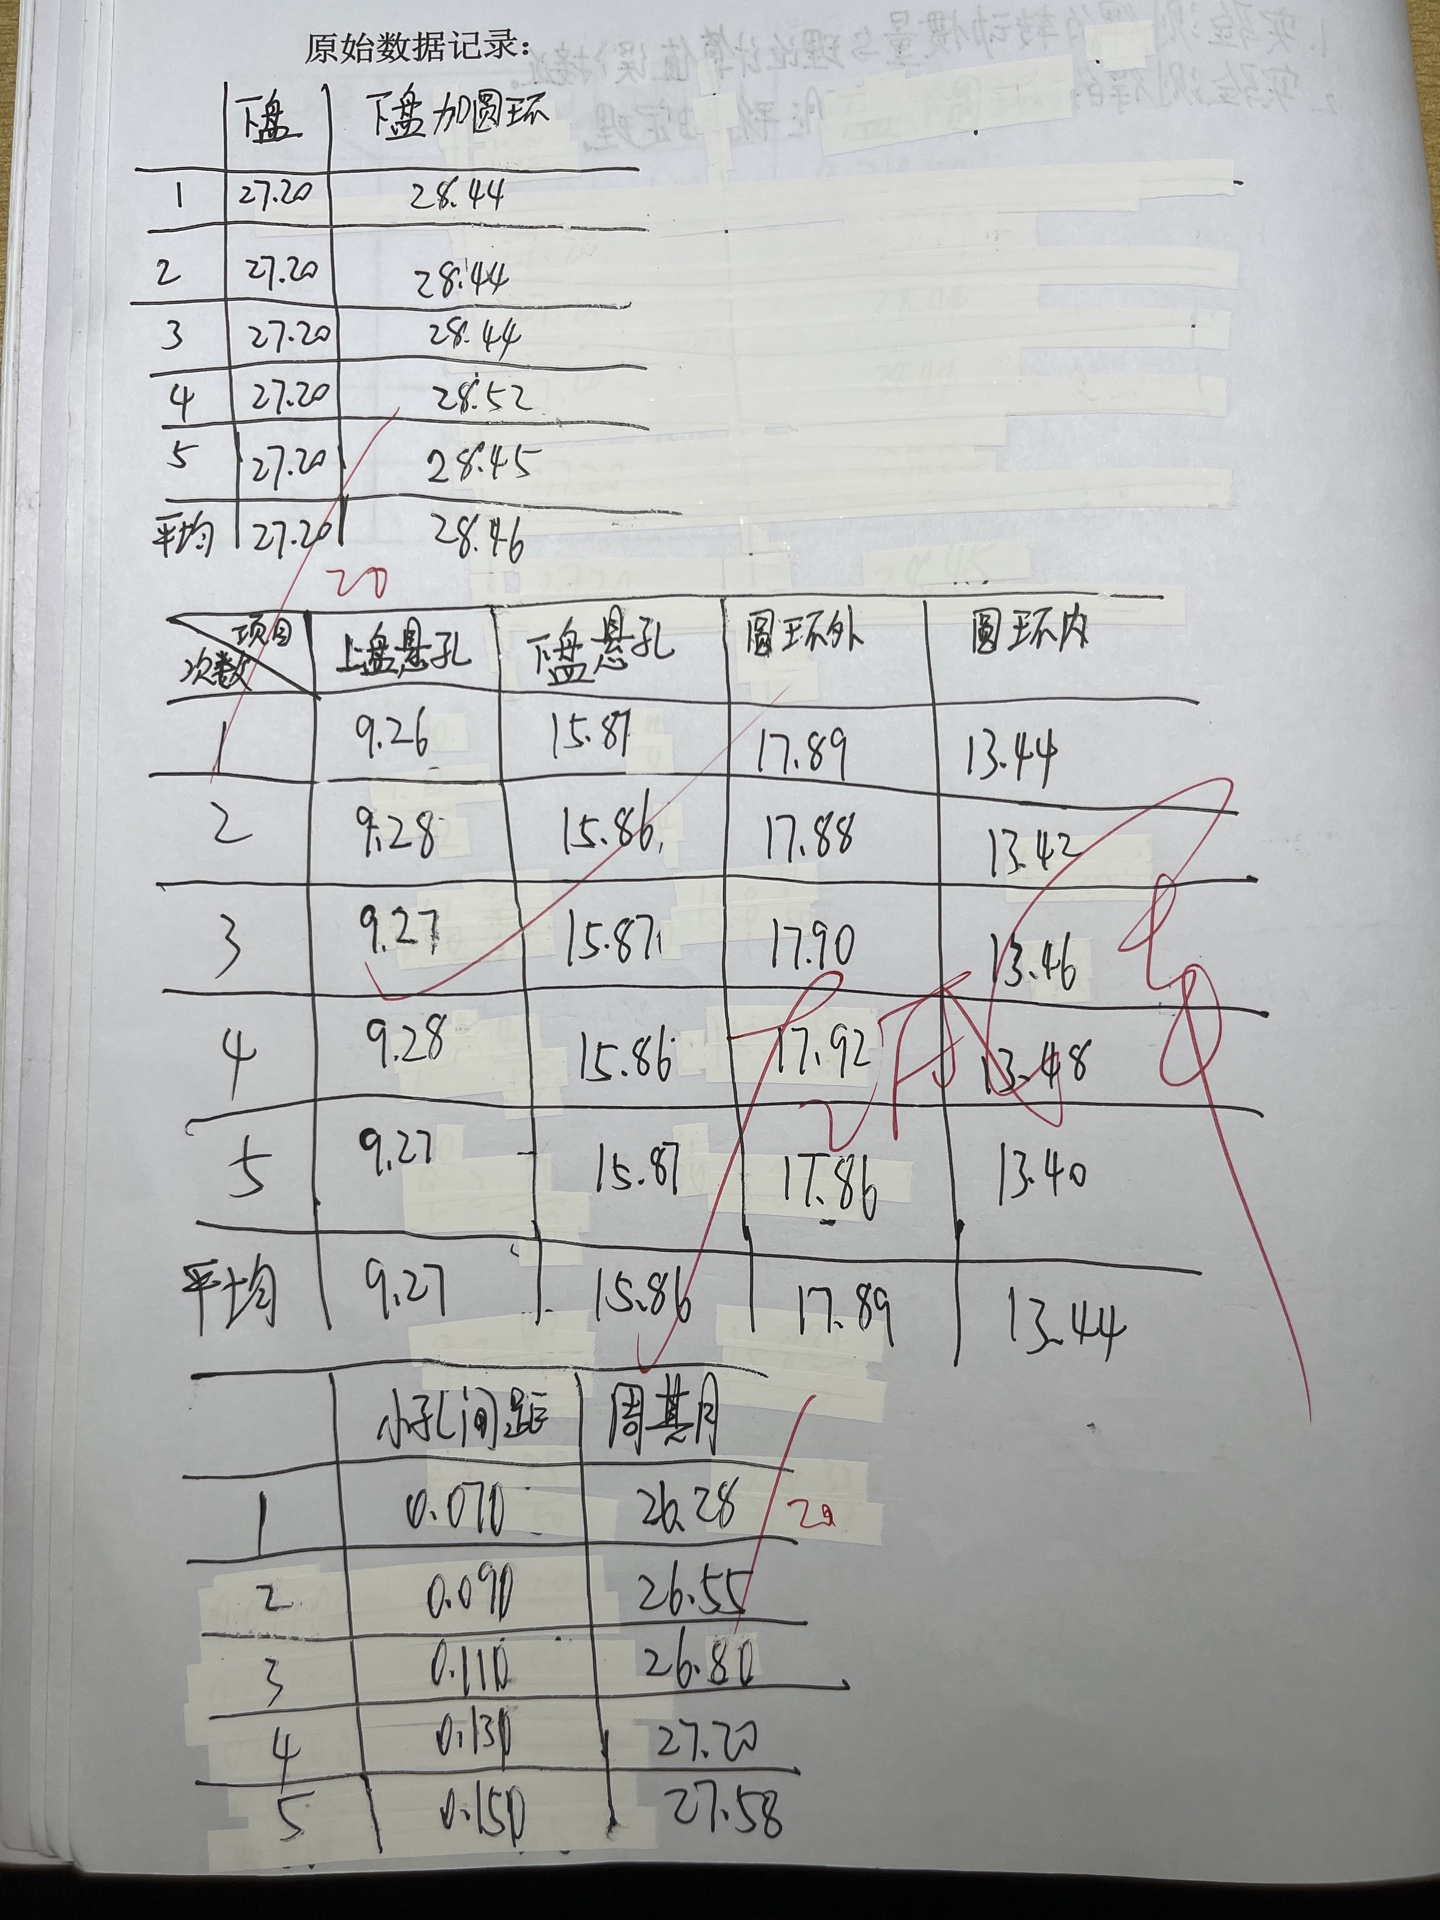 原始数据记录：
下盘 下盘加圆环
1 27.20 28.44
2 27.20 28.44
3 27.20 28.44
4 27.20 28.52
5 27.20 28.45
平均 27.20 28.46
20
项目 次数 上盘悬孔 下盘悬孔 圆环外 圆环内
1 9.26 15.87 17.89 13.44
2 9.28 15.86 17.88 13.42
3 9.27 15.87 17.90 13.46
4 9.28 15.86 17.92 13.48
5 9.27 15.87 17.86 13.40
平均 9.27 15.86 17.89 13.44
小孔间距 周期
1 0.070 26.28
20
2 0.090 26.55
3 0.110 26.80
4 0.130 27.20
5 0.150 27.58